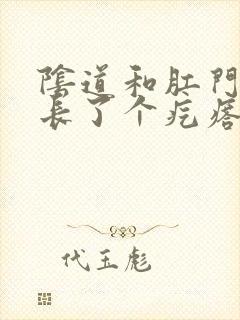 陰道和肛門
長了个疙瘩
代玉彪